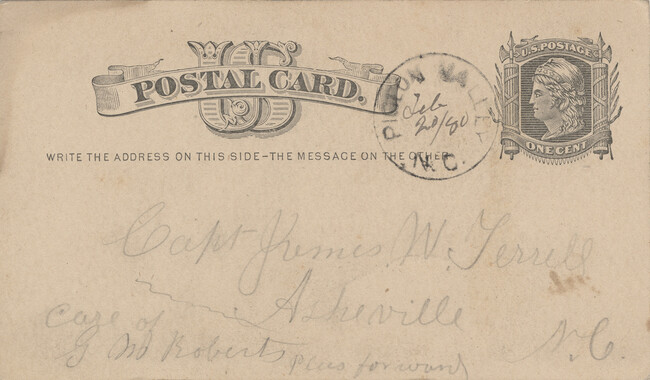 US
POSTAL CARD.
U.S. POSTAGE
ONE CENT
PIGEON VALLEY
Feb
28/80
N.C.
WRITE THE ADDRESS ON THIS SIDE-THE MESSAGE ON THE OTHER
Capt James W. Terrell
Asheville
N.C.
Care of
G M Roberts Pleas forward